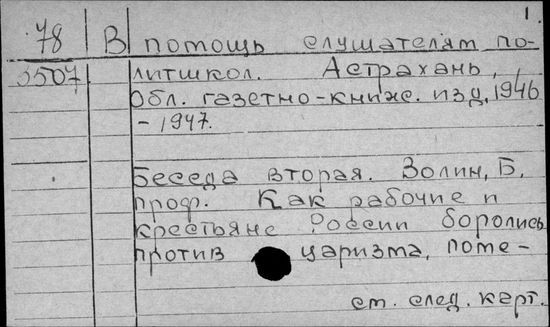 1.
78 В помощь слушателям по-
5507 литшкол. Астрахань,
Обл. газетно-книж. изд, 1946
- 1947.
Беседа вторая. Волин, Б,
проф. Как рабочие и
крестьяне России боролись
против царизма, поме-
см. след. карт.